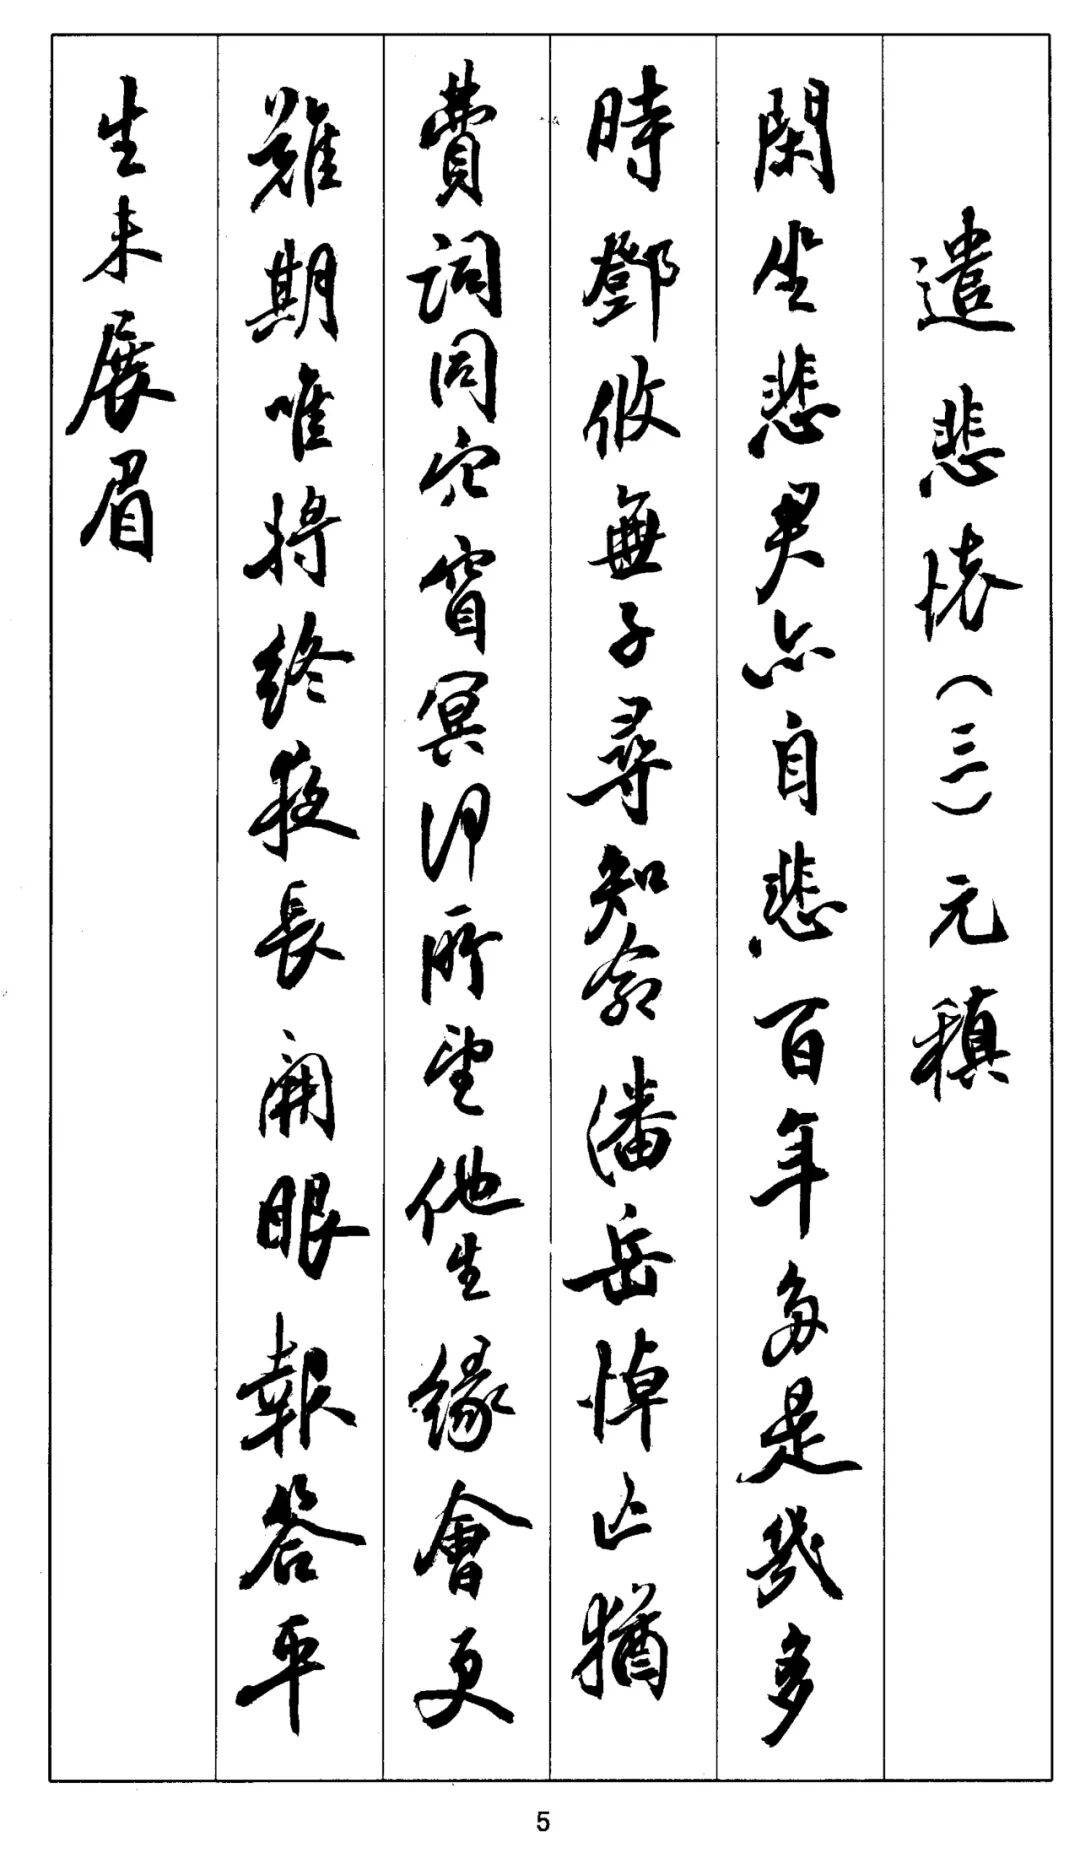 遣悲懷（三）元稹
閑坐悲君亦自悲百年多是幾多
時鄧攸無子尋知命潘岳悼亡猶
費詞同穴窅冥何所望他生緣會更
難期唯將終夜長開眼報答平
生未展眉
5